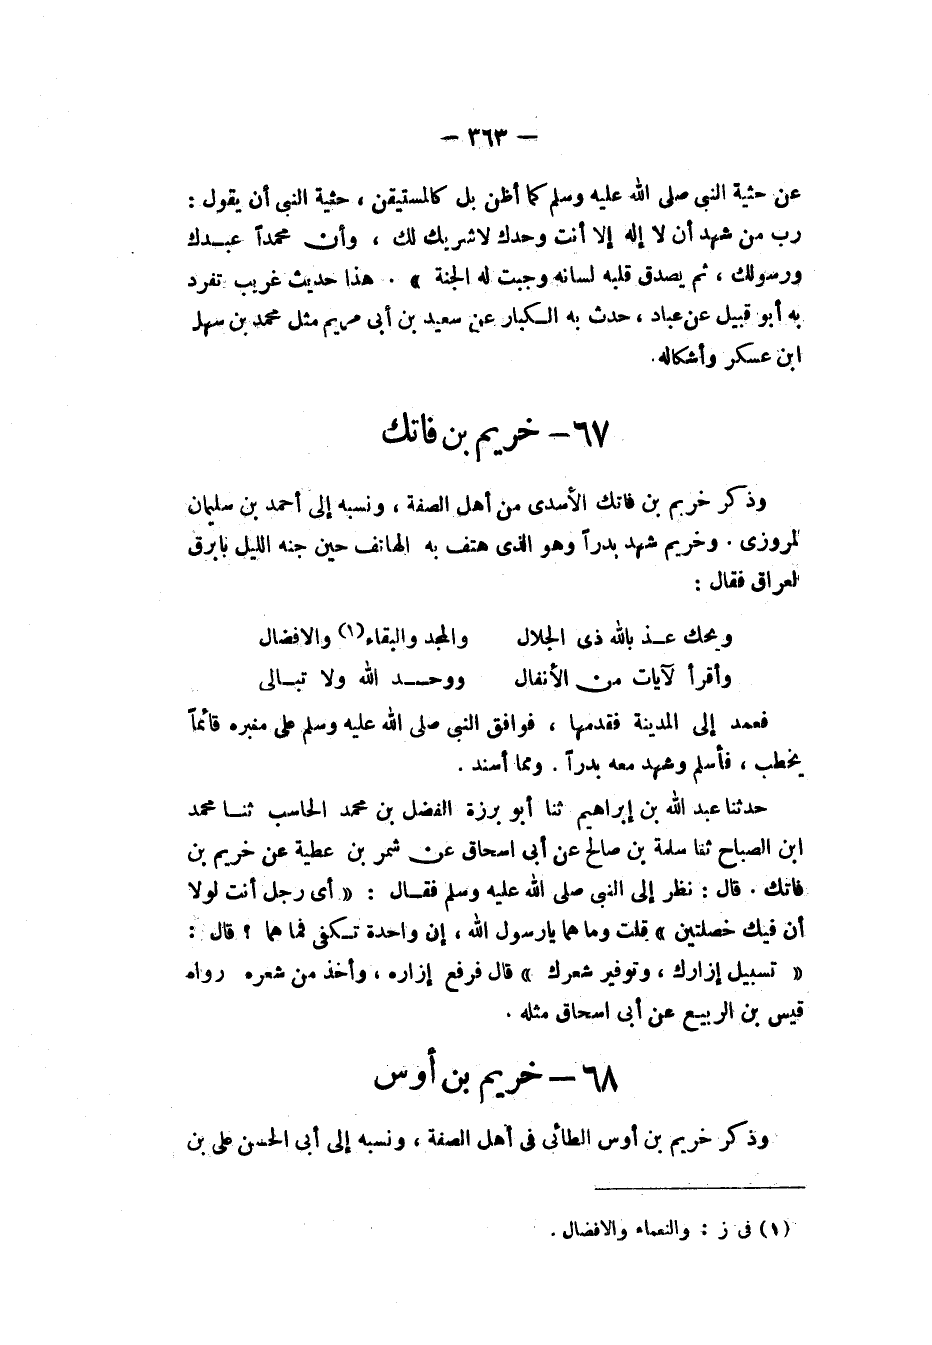 — ٣٦٣ —
عن حثية النبى صلى الله عليه وسلم كما أظن بل كالمستيقن ، حثية النبى أن يقول :
رب من شهد أن لا إله إلا أنت وحدك لاشريك لك ، وأن محمداً عبدك
ورسولك ، ثم يصدق قلبه لسانه وجبت له الجنة » . هذا حديث غريب تفرد
به أبو قبيل عن عباد ، حدث به الكبار عن سعيد بن أبى مريم مثل محمد بن سهل
ابن عسكر وأشكاله .
٦٧ — خريم بن فاتك
وذكر خريم بن فاتك الأسدى من أهل الصفة ، ونسبه إلى أحمد بن سليمان
لمروزى . وخريم شهد بدراً وهو الذى هتف به الهاتف حين جنه الليل بابرق
لعراق فقال :
ويحك عـذ بالله ذى الجلال والمجد والبقاء(١) والافضال
وأقرأ لآيات من الأنفال ووحـد الله ولا تبـالى
فعمد إلى المدينة فقدمها ، فوافق النبى صلى الله عليه وسلم على منبره قائماً
يخطب ، فأسلم وشهد معه بدراً . ومما أسند .
حدثنا عبد الله بن إبراهيم ثنا أبو برزة الفضل بن محمد الحاسب ثنـا محمد
ابن الصباح ثنا سلمة بن صالح عن أبى اسحاق عن شمر بن عطية عن خريم بن
فاتك . قال : نظر إلى النبى صلى الله عليه وسلم فقـال : « أى رجل أنت لولا
أن فيك خصلتين » قلت وما هما يارسول الله ، إن واحدة تـكفى فما هما ؟ قال :
« تسبيل إزارك ، وتوفير شعرك » قال فرفع إزاره ، وأخذ من شعره رواه
قيس بن الربيع عن أبى اسحاق مثله .
٦٨ — خريم بن أوس
وذكر خريم بن أوس الطائى فى أهل الصفة ، ونسبه إلى أبى الحسن على بن
(١) فى ز : والنعماء والافضال .